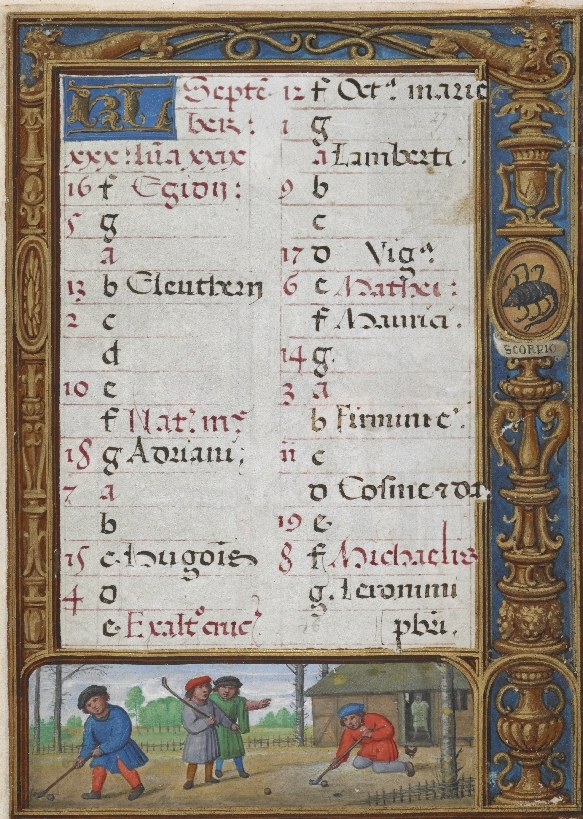 KL Septē
ber:
xxx: lūa xxix
16 f Egidii:
5 g
a
13 b Eleutherii
2 c
d
10 e
f Nat: mᵉ
18 g Adriani;
7 a
b
15 c Hugois
4 d
e Exalt° cruc
12 f Octᵃ marie
1 g
a Lamberti.
9 b
c
17 d Vigᵃ:
6 e Mathei:
f Maurici.
14 g
3 a
b Firmini e:
11 c
d Cosme ⁊ da.
19 e
8 f Michaelis
g Ieronimi
pbri.
SCORPIO